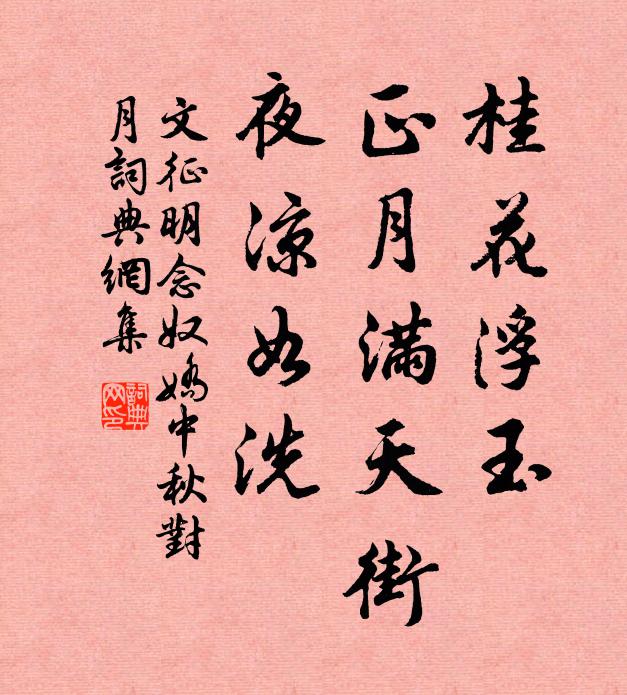 桂花浮玉
正月滿天街
夜涼如洗
文征明念奴嬌中秋對
月詞典網集
詞典
网印